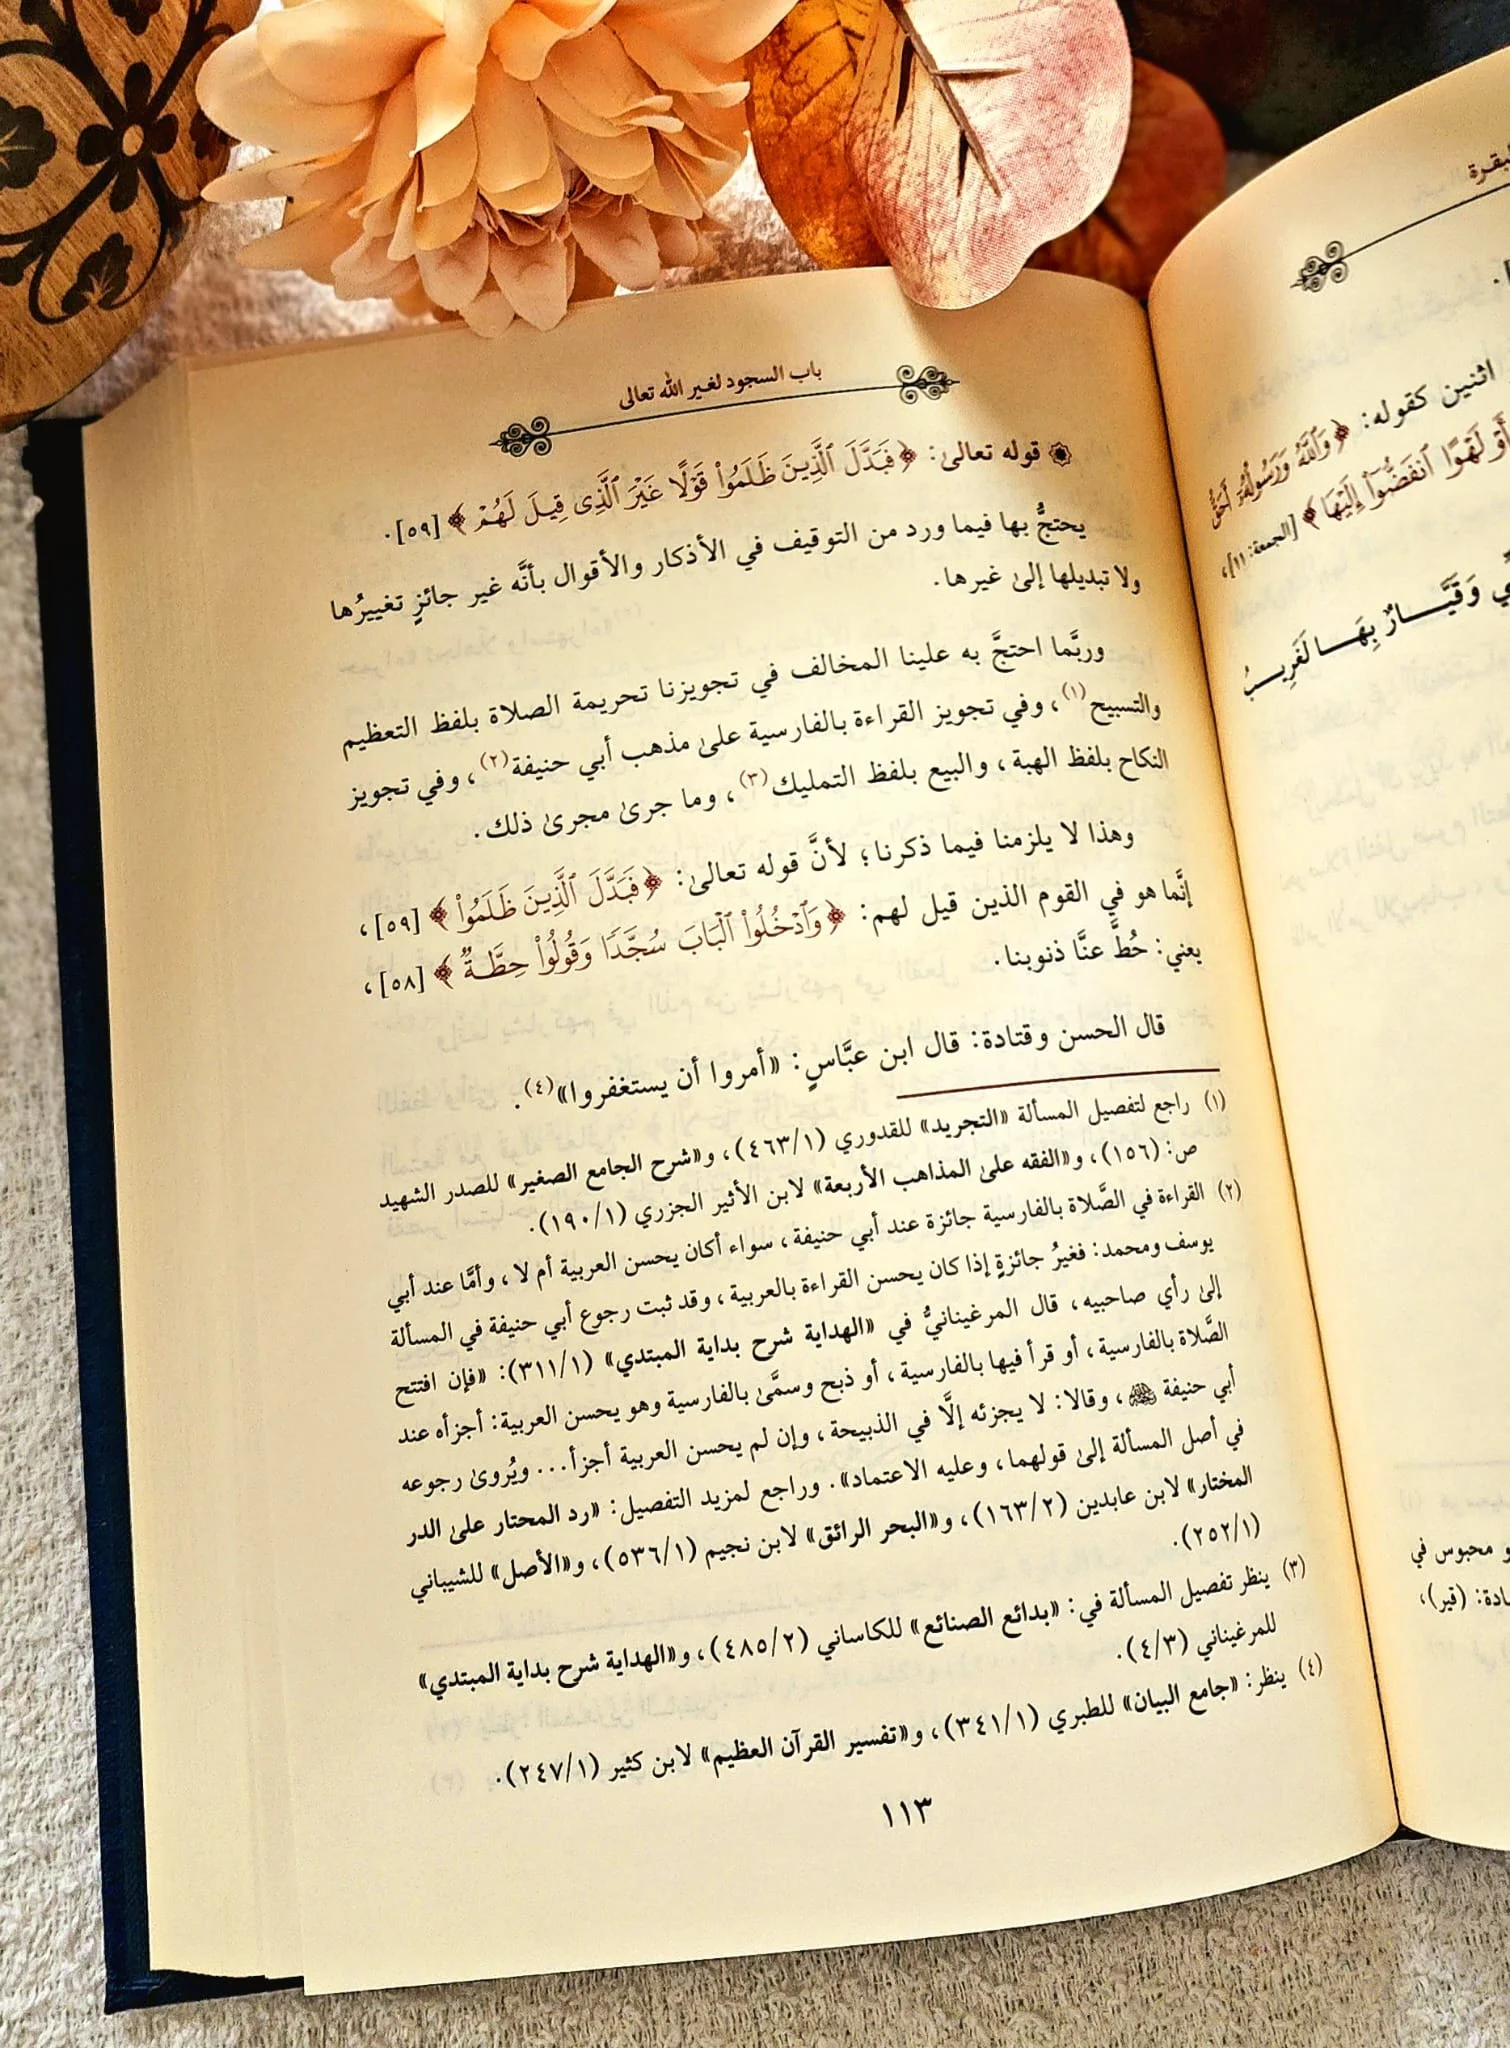 البقرة
اثنين كقوله: ﴿وَٱللَّهُ وَرَسُولُهُۥٓ أَحَقُّ
أَوۡ لَهۡوًا ٱنفَضُّوٓاْ إِلَيۡهَا﴾ [الجمعة: ١١]،
وَقَيَّـــارٌ بِهَـــا لَغَرِيـــبُ
و محبوس في
ادة: (قير)،
باب السجود لغير الله تعالى
قوله تعالىٰ: ﴿فَبَدَّلَ ٱلَّذِينَ ظَلَمُواْ قَوۡلًا غَيۡرَ ٱلَّذِى قِيلَ لَهُمۡ﴾ [٥٩].
يحتجُّ بها فيما ورد من التوقيف في الأذكار والأقوال بأنَّه غير جائزٍ تغييرُها
ولا تبديلها إلىٰ غيرها.
وربَّما احتجَّ به علينا المخالف في تجويزنا تحريمة الصلاة بلفظ التعظيم
والتسبيح(١)، وفي تجويز القراءة بالفارسية علىٰ مذهب أبي حنيفة(٢)، وفي تجويز
النكاح بلفظ الهبة، والبيع بلفظ التمليك(٣)، وما جرىٰ مجرىٰ ذلك.
وهذا لا يلزمنا فيما ذكرنا؛ لأنَّ قوله تعالىٰ: ﴿فَبَدَّلَ ٱلَّذِينَ ظَلَمُواْ﴾ [٥٩]،
إنَّما هو في القوم الذين قيل لهم: ﴿وَٱدۡخُلُواْ ٱلۡبَابَ سُجَّدًا وَقُولُواْ حِطَّةٌ﴾ [٥٨]،
يعني: حُطَّ عنَّا ذنوبنا.
قال الحسن وقتادة: قال ابن عبَّاسٍ: «أمروا أن يستغفروا»(٤).
(١) راجع لتفصيل المسألة «التجريد» للقدوري (٤٦٣/١)، و«شرح الجامع الصغير» للصدر الشهيد
ص: (١٥٦)، و«الفقه علىٰ المذاهب الأربعة» لابن الأثير الجزري (١٩٠/١).
(٢) القراءة في الصَّلاة بالفارسية جائزة عند أبي حنيفة، سواء أكان يحسن العربية أم لا، وأمَّا عند أبي
يوسف ومحمد: فغيرُ جائزةٍ إذا كان يحسن القراءة بالعربية، وقد ثبت رجوع أبي حنيفة في المسألة
إلىٰ رأي صاحبيه، قال المرغينانيُّ في «الهداية شرح بداية المبتدي» (٣١١/١): «فإن افتتح
الصَّلاة بالفارسية، أو قرأ فيها بالفارسية، أو ذبح وسمَّىٰ بالفارسية وهو يحسن العربية: أجزأه عند
أبي حنيفة، وقالا: لا يجزئه إلَّا في الذبيحة، وإن لم يحسن العربية أجزأ... ويُروىٰ رجوعه
في أصل المسألة إلىٰ قولهما، وعليه الاعتماد». وراجع لمزيد التفصيل: «رد المحتار علىٰ الدر
المختار» لابن عابدين (١٦٣/٢)، و«البحر الرائق» لابن نجيم (٥٣٦/١)، و«الأصل» للشيباني
(٢٥٢/١).
(٣) ينظر تفصيل المسألة في: «بدائع الصنائع» للكاساني (٤٨٥/٢)، و«الهداية شرح بداية المبتدي»
للمرغيناني (٤/٣).
(٤) ينظر: «جامع البيان» للطبري (٣٤١/١)، و«تفسير القرآن العظيم» لابن كثير (٢٤٧/١).
١١٣